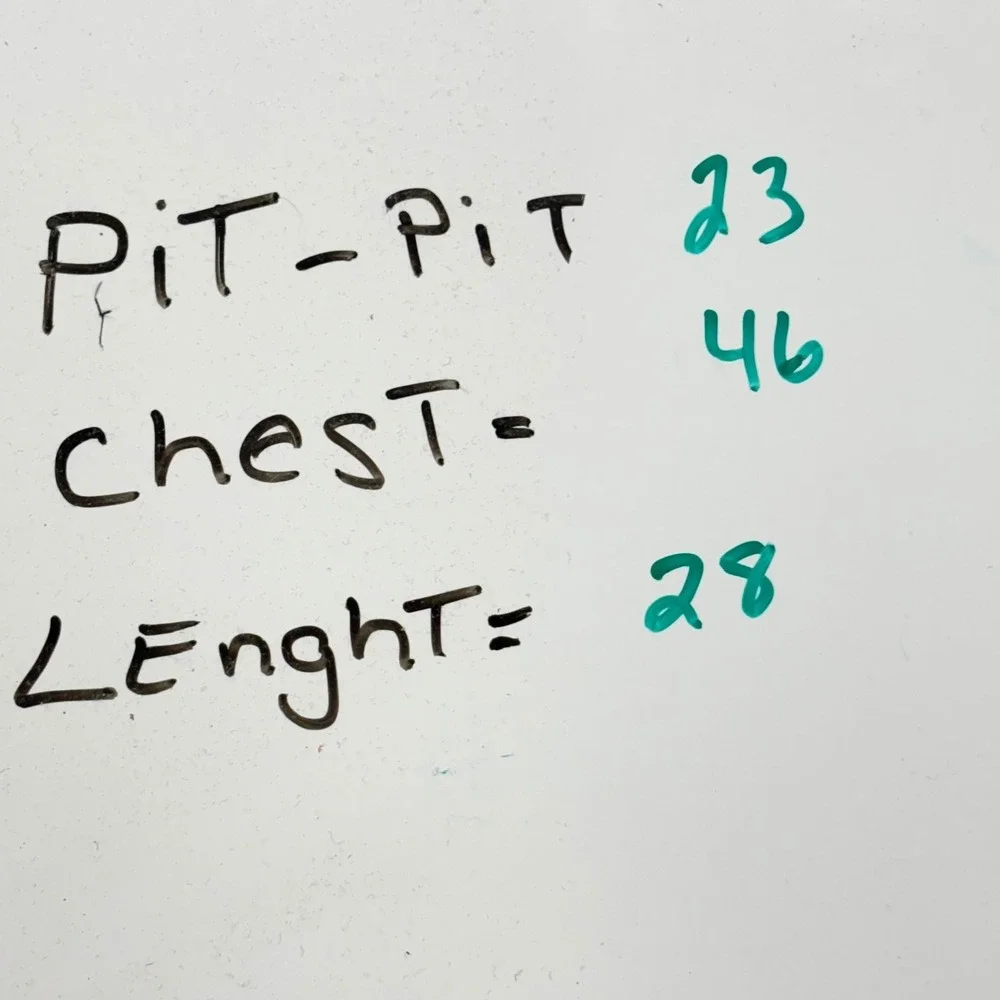 PiT - PiT 23
ChesT= 46
LEnghT= 28